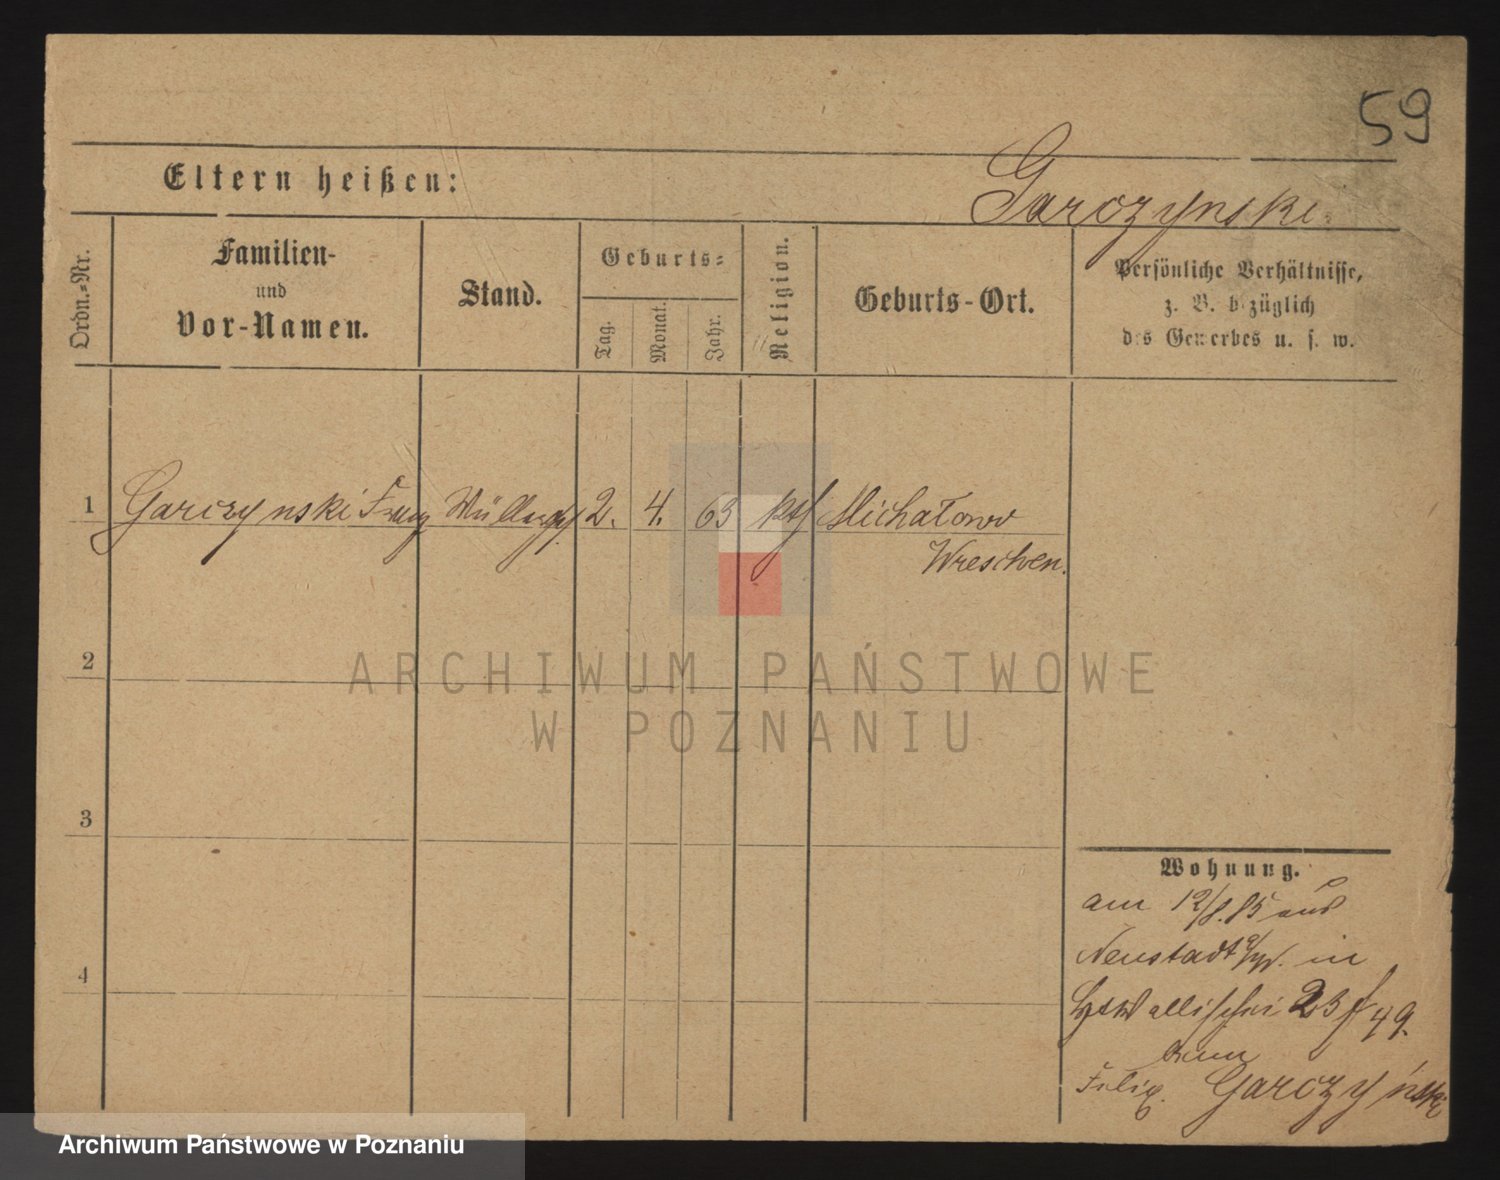 59
Eltern heißen:
Garczynski.
Ordn.=Nr.
Familien-
und
Vor-Namen.
Stand.
Geburts=
Tag.
Monat.
Jahr.
Religion.
Geburts-Ort.
Persönliche Verhältnisse,
z. B. bezüglich
des Gewerbes u. s. w.
1
Garczynski Franz
2.
4.
63
kth
Michałowo
Wreschen.
2
3
4
Wohnung.
am 12/8.85 aus
Neustadt in
Wallischei 23 / 49.
Felix Garczyński
ARCHIWUM PAŃSTWOWE
W POZNANIU
Archiwum Państwowe w Poznaniu